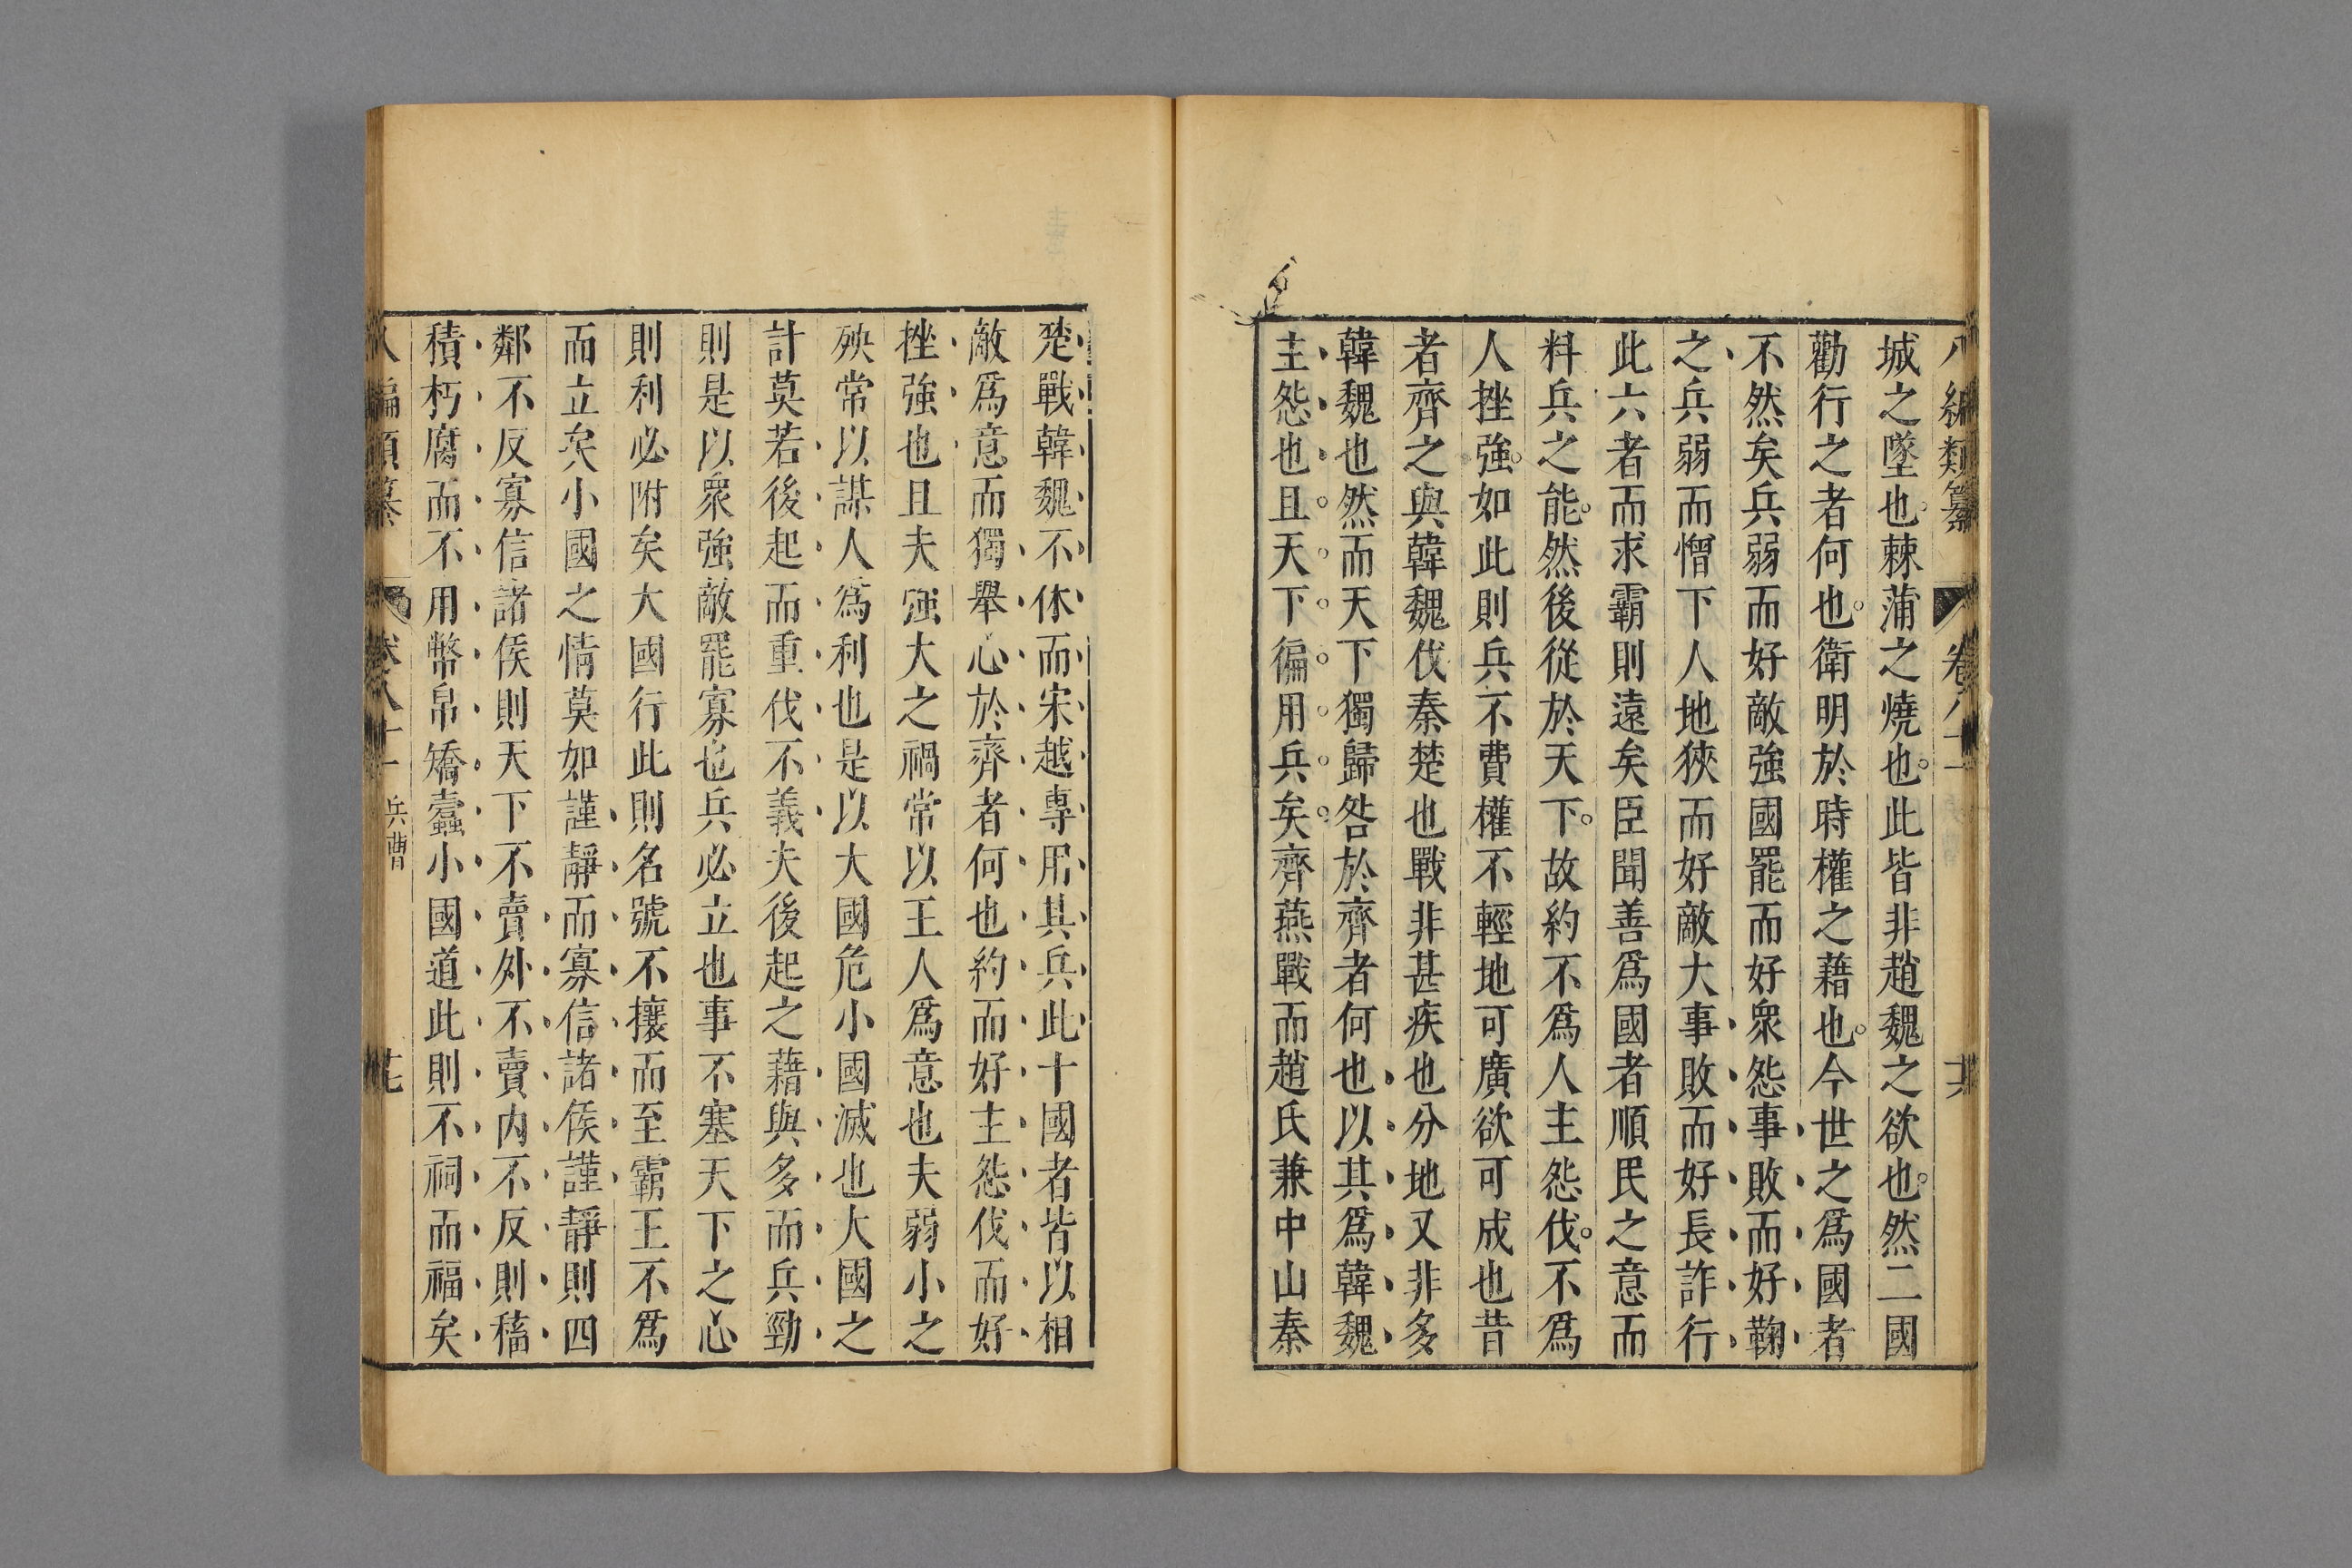 八編類纂 卷八十一 十六
城之墜也棘蒲之燒也此皆非趙魏之欲也然二國
勸行之者何也衛明於時權之藉也今世之爲國者
不然矣兵弱而好敵強國罷而好衆怨事敗而好鞠
之兵弱而憎下人地狹而好敵大事敗而好長詐行
此六者而求霸則遠矣臣聞善爲國者順民之意而
料兵之能然後從於天下故約不爲人主怨伐不爲
人挫強如此則兵不費權不輕地可廣欲可成也昔
者齊之與韓魏伐秦楚也戰非甚疾也分地又非多
韓魏也然而天下獨歸咎於齊者何也以其爲韓魏
主怨也且天下徧用兵矣齊燕戰而趙氏兼中山秦
楚戰韓魏不休而宋越專用其兵此十國者皆以相
敵爲意而獨舉心於齊者何也約而好主怨伐而好
挫強也且夫強大之禍常以王人爲意也夫弱小之
殃常以謀人爲利也是以大國危小國滅也大國之
計莫若後起而重伐不義夫後起之藉與多而兵勁
則是以衆強敵罷寡也兵必立也事不塞天下之心
則利必附矣大國行此則名號不攘而至霸王不爲
而立矣小國之情莫如謹靜而寡信諸侯謹靜則四
鄰不反寡信諸侯則天下不賣外不賣內不反則穑
積朽腐而不用幣帛矯蠹小國道此則不祠而福矣
八編類纂 卷八十一 兵曹 十七